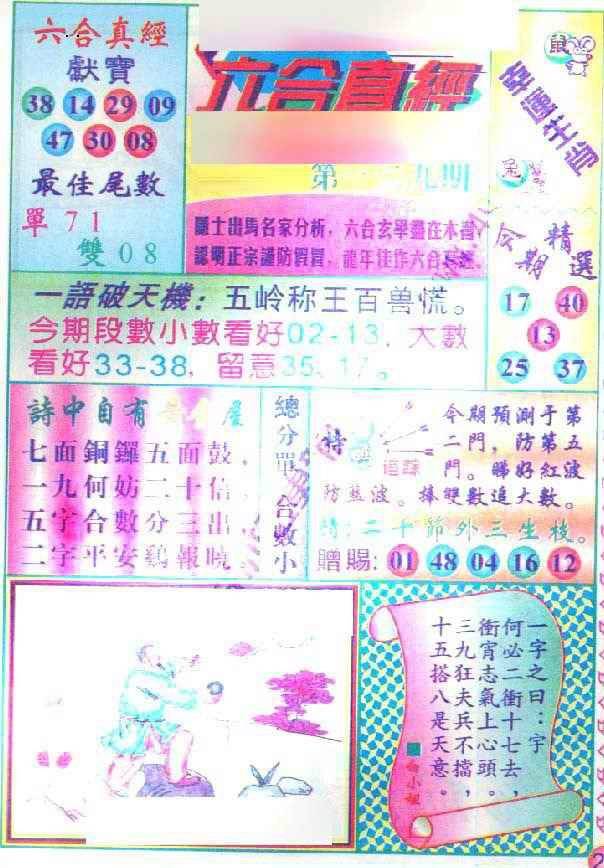 六合真經
獻寶
38 14 29 09
47 30 08
最佳尾數
單71
雙08
六合真經
第
九期
鼠
幸運生肖
兔
今期精選
17 40
13
25 37
一語破天機：五岭称王百兽慌。
今期段數小數看好02-13，大數
看好33-38，留意35、17。
詩中自有
七面銅鑼五面鼓，
一九何妨二十倍，
五字合數分三出，
二字平安鷄報曉。
總分單
合數小
特
追踪
今期預測于第
二門，防第五
門。睇好紅波
防藍波。捧雙數追大數。
二十節外三生枝。
贈賜：01 48 04 16 12
一字之曰：宇
何必二衝十七去，
衝宵志氣上心頭。
三九狂夫兵不擋，
十五搭八是天意。